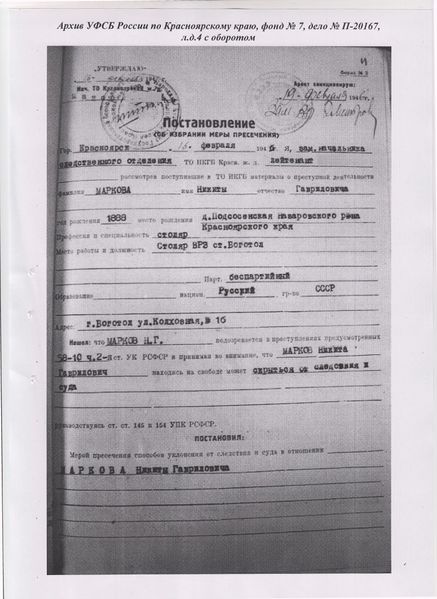 Архив УФСБ России по Красноярскому краю, фонд № 7, дело № П-20167,
л.д.4 с оборотом
4
„УТВЕРЖДАЮ“
Форма № 2
Нач. ТО
Арест санкционирую:
19 февраля 1946г.
Постановление
(ОБ ИЗБРАНИИ МЕРЫ ПРЕСЕЧЕНИЯ)
Гор. Красноярск 16. февраля 194 г. Я, зам.начальника
следственного отделения ТО НКГБ Красн. ж. д. лейтенант
рассмотрев поступившие в ТО НКГБ материалы о преступной деятельности
фамилия МАРКОВА имя Никиты отчество Гавриловича
год рождения 1888 место рождения д.Подсосенская Назаровского р-на
Красноярского края
Профессия и специальность столяр
Место работы и должность Столяр ВРЗ ст.Боготол
Парт. беспартийный
Образование национ. Русский гр-во СССР
Адрес г.Боготол ул.Колхозная,№ 16
Нашел: что МАРКОВ Н.Г. подозревается в преступлениях предусмотренных
58-10 ч.2-я ст. УК РСФСР и принимая во внимание, что МАРКОВ Никита
Гаврилович находясь на свободе может скрыться от следствия и
суда
Руководствуясь ст. ст. 145 и 154 УПК РСФСР.
ПОСТАНОВИЛ:
Мерой пресечения способов уклонения от следствия и суда в отношении
МАРКОВА Никиты Гавриловича